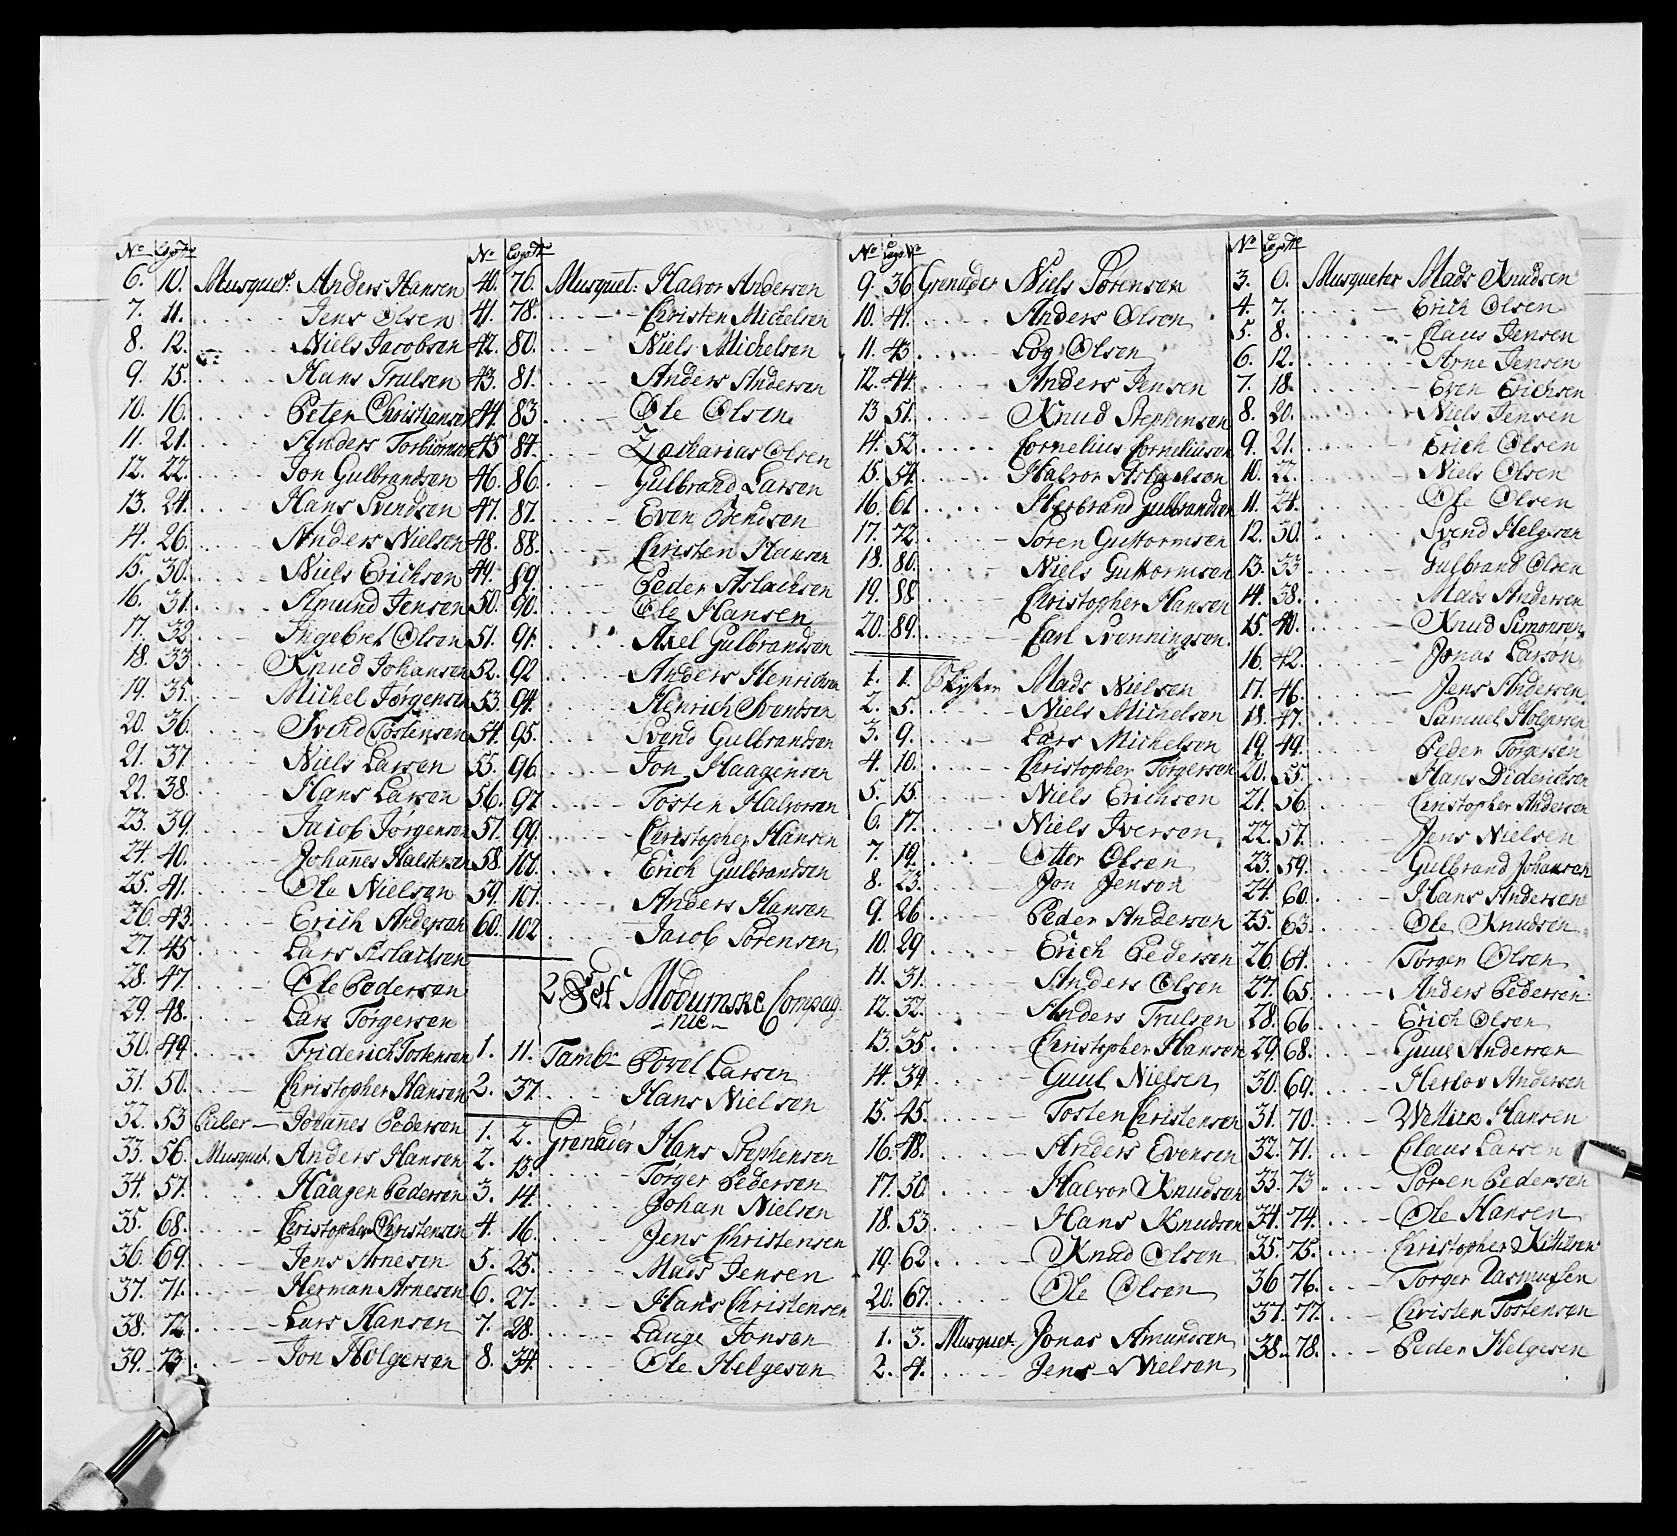 No Lægs No
6. 10. Musquet: Anders Hansen
7. 11. Jens Olsen
8. 12. Niels Jacobsen
9. 15. Hans Trulsen
10. 16. Peter Christiansen
11. 21. Anders Torbiornsen
12. 22. Jon Gulbrandsen
13. 24. Hans Svendsen
14. 26. Anders Nielsen
15. 30. Niels Erichsen
16. 31. Amund Jensen
17. 32. Ingebret Olsen
18. 33. Knud Johansen
19. 35. Michel Jørgensen
20. 36. Svend Tostensen
21. 37. Niels Larsen
22. 38. Hans Larsen
23. 39. Jacob Jørgensen
24. 40. Johannes Halstensen
25. 41. Ole Nielsen
26. 43. Erich Andersen
27. 45. Lars Aslachsen
28. 47. Ole Pedersen
29. 48. Lars Torgersen
30. 49. Friderich Tostensen
31. 50. Christopher Hansen
32. 53. Piber Johannes Pedersen
33. 56. Musquet. Anders Hansen
34. 57. Haagen Pedersen
35. 68. Christopher Christensen
36. 69. Jens Arnesen
37. 71. Herman Arnesen
38. 72. Lars Hansen
39. 73. Jon Holgersen
No Lægs No
40. 76. Musquet: Halvor Andersen
41. 78. Christen Michelsen
42. 80. Niels Michelsen
43. 81. Anders Andersen
44. 83. Ole Olsen
45. 84. Zacharias Olsen
46. 86. Gulbrand Larsen
47. 87. Even Bendsen
48. 88. Christen Hansen
49. 89. Peder Aslachsen
50. 90. Ole Hansen
51. 91. Axel Gulbrandsen
52. 92. Anders Henrichsen
53. 94. Henrich Svendsen
54. 95. Svend Gulbrandsen
55. 96. Jon Haagensen
56. 97. Tosten Halvorsen
57. 99. Christopher Hansen
58. 100. Erich Gulbrandsen
59. 101. Anders Hansen
60. 102. Jacob Sørensen
2. Det Modumske Compag-
nie
1. 11. Tambr Povel Larsen
2. 37. Hans Nielsen
1. 2. Grenader Hans Stephensen
2. 13. Torger Pedersen
3. 14. Johan Nielsen
4. 16. Jens Christensen
5. 25. Mads Jensen
6. 27. Hans Christensen
7. 28. Lauge Jonsen
8. 34. Ole Helgesen
No Lægs No
9. 36. Grenader Niels Sørensen
10. 41. Anders Olsen
11. 43. Olsen
12. 44. Anders Jensen
13. 51. Knud Stephensen
14. 52. Cornelius Corneliusen
15. 54. Halvor Aslachsen
16. 61. Herbrand Gulbrandsen
17. 72. Søren Guttormsen
18. 80. Niels Guttormsen
19. 88. Christopher Hansen
20. 89. Carl Svenningsen.
1. 1. Skytter Mads Nielsen
2. 5. Niels Michelsen
3. 9. Lars Michelsen
4. 10. Christopher Torgersen
5. 15. Niels Erichsen
6. 17. Niels Iversen
7. 19. Otter Olsen
8. 23. Jon Jensen
9. 26. Peder Andersen
10. 29. Erich Pedersen
11. 31. Anders Olsen
12. 32. Anders Trulsen
13. 35. Christopher Hansen
14. 39. Guul Nielsen
15. 45. Tosten Christensen
16. 48. Anders Evensen
17. 50. Halvor Knudsen
18. 53. Hans Knudsen
19. 62. Knud Olsen
20. 67. Ole Olsen
1. 3. Musquet. Jonas Amundsen
2. 4. Jens Nielsen
No Lægs No
3. 6. Musqueter Mads Knudsen
4. 7. Erich Olsen
5. 8. Claus Jensen
6. 12. Arne Jensen
7. 18. Even Erichsen
8. 20. Niels Jensen
9. 21. Erich Olsen
10. 22. Niels Olsen
11. 24. Ole Olsen
12. 30. Svend Helgesen
13. 33. Gulbrand Olsen
14. 38. Mads Andersen
15. 40. Knud Simonsen
16. 42. Jonas Larsen
17. 46. Jens Andersen
18. 47. Samuel Holgersen
19. 49. Peder Torgersen
20. 55. Hans Diderichsen
21. 56. Christopher Andersen
22. 57. Jens Nielsen
23. 59. Gulbrand Johansen
24. 60. Hans Andersen
25. 63. Ole Knudsen
26. 64. Torger Olsen
27. 65. Anders Pedersen
28. 66. Erich Olsen
29. 68. Guul Andersen
30. 69. Herlov Andersen
31. 70. Hansen
32. 71. Claus Larsen
33. 73. Søren Pedersen
34. 74. Ole Hansen
35. 75. Christopher Kittilsen
36. 76. Torger Rasmussen
37. 77. Christen Tostensen
38. 78. Peder Helgesen